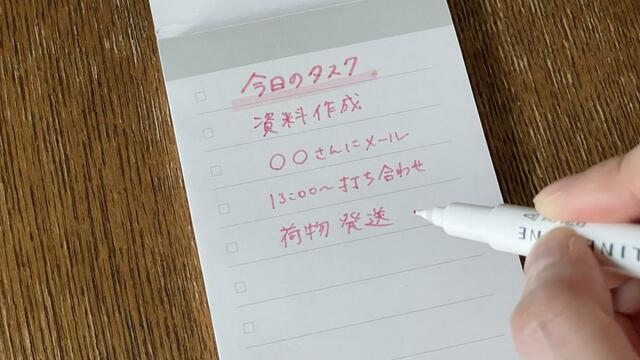 今日のタスク
資料作成
〇〇さんにメール
13:00〜打ち合わせ
荷物発送